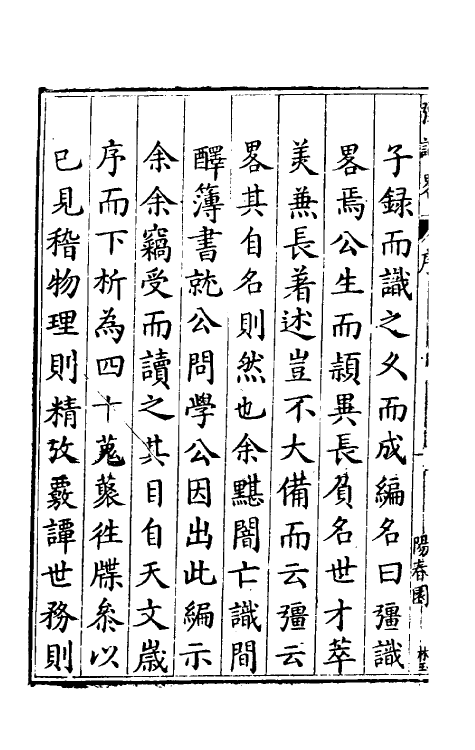 子録而識之久而成編名曰彊識
畧焉公生而頴異長負名世才萃
羙兼長著述豈不大備而云彊云
畧其自名則然也余黮闇亡識間
醳簿書就公問學公因出此編示
余余竊受而讀之其目自天文歳
序而下析為四十蒐蘂徃牒叅以
已見稽物理則精攷覈譚世務則
序
陽春園